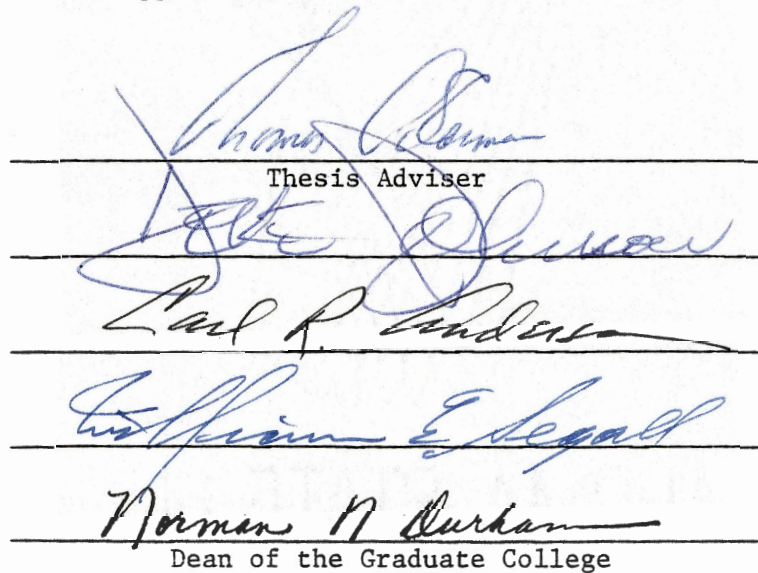 Thomas
Thesis Adviser
Johnson
Carl R. Anderson
William E. Segall
Norman N Durham
Dean of the Graduate College